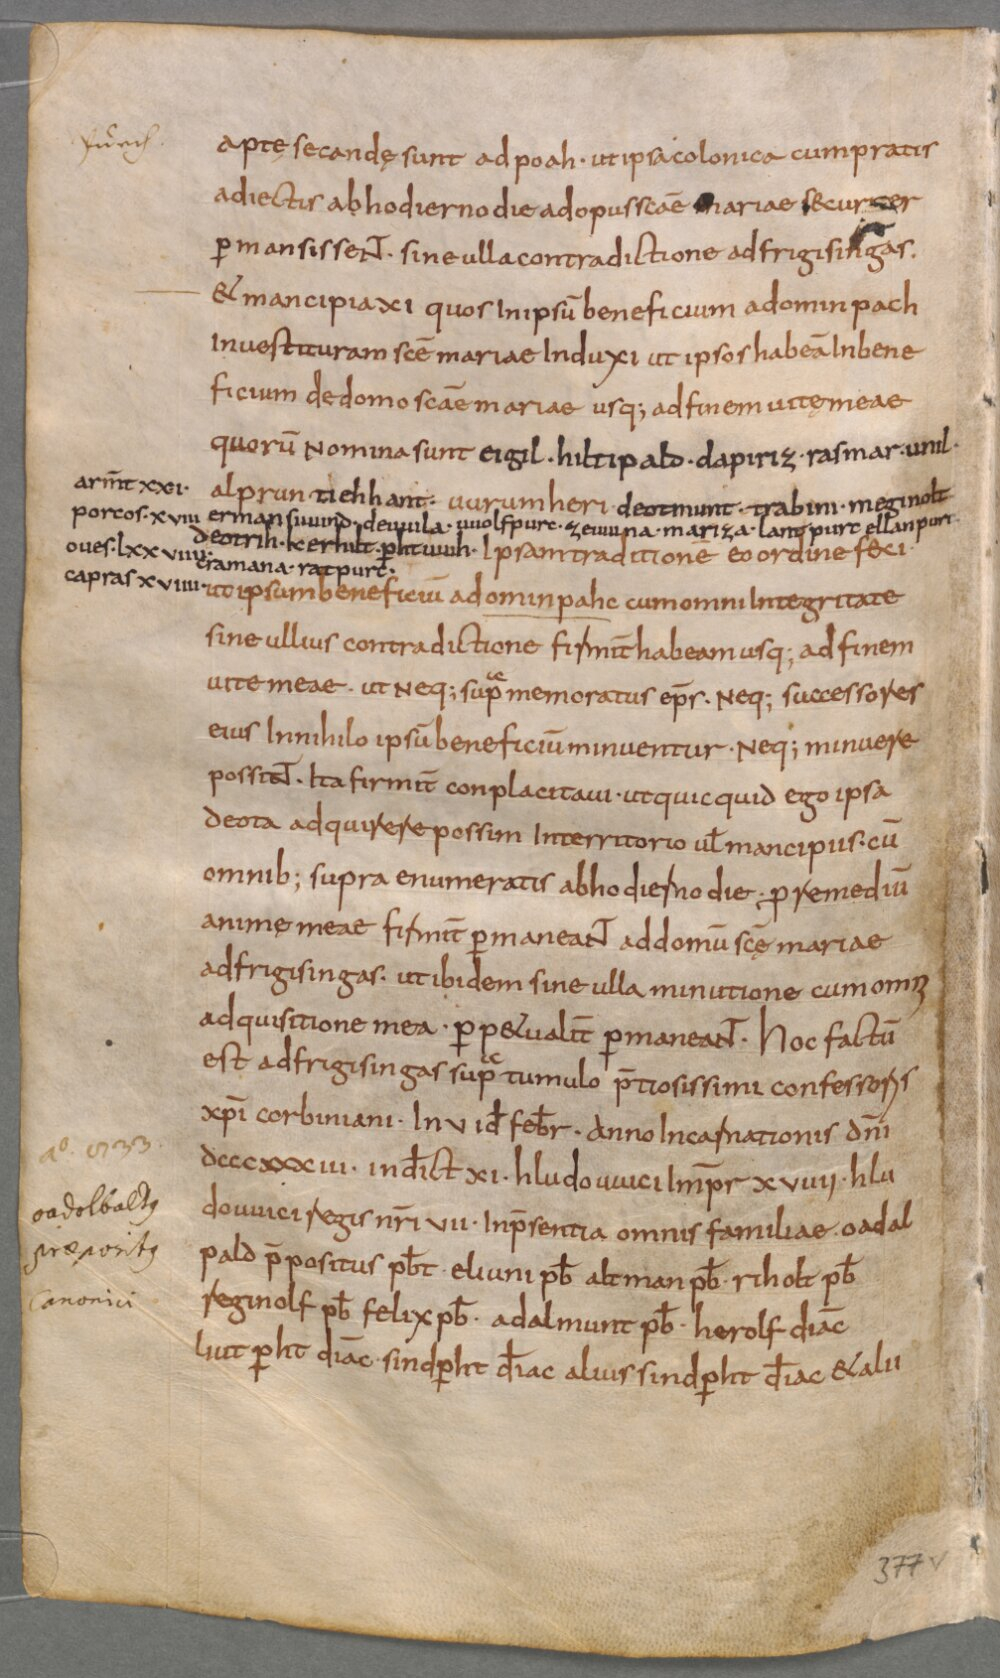 aptę secandę sunt ad poah · ut ipsa colonica cum pratis
adiectis ab hodierno die ad opus scāe mariae securiter
p̱mansissent · sine ulla contradictione ad frigisingas.
& mancipia xi quos In ipsū beneficium ad ominpach
Inuestituram scē mariae Induxi ut ipsos habeā In bene
ficium de domo scāe mariae usq; ad finem uitę meae
quorū Nomina sunt eigil · hiltipald · dapiriz · rasmar · unil ·
armt̄ xxi ·
alprun tiehhant · uurumheri · deotmunt · trabini · meginolt
porcos · xviii
ermansuuind · deuuila · uuolfpurc · zeiuuina · mariza · lantpurc ellanpurc
deotrih · kerhilt · p̱htuuih · Ipsam traditionē eo ordine feci ·
oues · lxxviiii ·
cramana · ratpurc ·
capras xviiii ·
ut ipsum beneficiū ad ominpahc cum omni Integritate
sine ullius contradictione firmit̄ habeam usq; ad finem
uite meae · ut Neq; sup̱ memoratus ep̄s · Neq; successores
eius In nihilo ipsū beneficiū minuentur · Neq; minuere
possint · Ita firmit̄ conplacitaui · ut quicquid ego ipsa
deota adquirere possim In territorio ul̄ mancipiis · cū
omnib; supra enumeratis ab hodierno die · ꝓ remediū
animę meae firmit̄ p̱maneant ad domū scę̄ mariae
ad frigisingas · ut ibidem sine ulla minutione cum om̄i
adquisitione mea · p̱p&ualit̄ p̱maneant · hoc factū
est ad frigisingas sup̱ tumulo p̄tiosissimi confessoris
xp̄i corbiniani · In v id̄ feb̄r · Anno Incarnationis dn̄i
a° · 833
dcccxxxiii · ind̄ict xi · hludouuici Imp̄r xviiii · hlu
oadolbaltꝰ
douuici regis nr̄i vii · In p̄sentia omnis familiae · oadal
præpositꝰ
pald p̄positus pb̄t · eliuni pb̄ altman pb̄ · riholt pb̄
Canonici
reginolf pb̄ felix pb̄ · adalmunt pb̄ · herolf diāc
liutp̱ht diāc · sindp̱ht d̄iac alius sindp̱ht d̄iac & alii
377 v